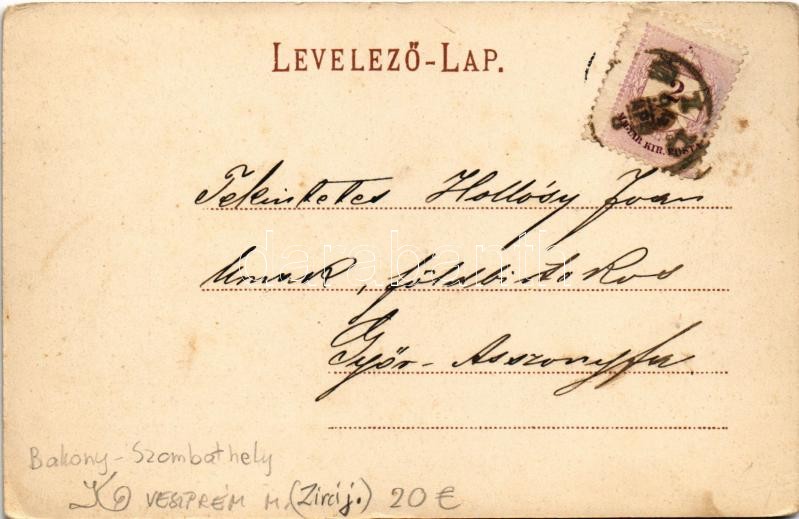 LEVELEZŐ-LAP.
2
MAGYAR KIR. POSTA
Tekintetes Hollósy Ivan
Urnak, földbirtokos
Győr-Asszonyfa
darabanth
Bakony-Szombathely
VESZPRÉM M. (Zirci j.) 20 €